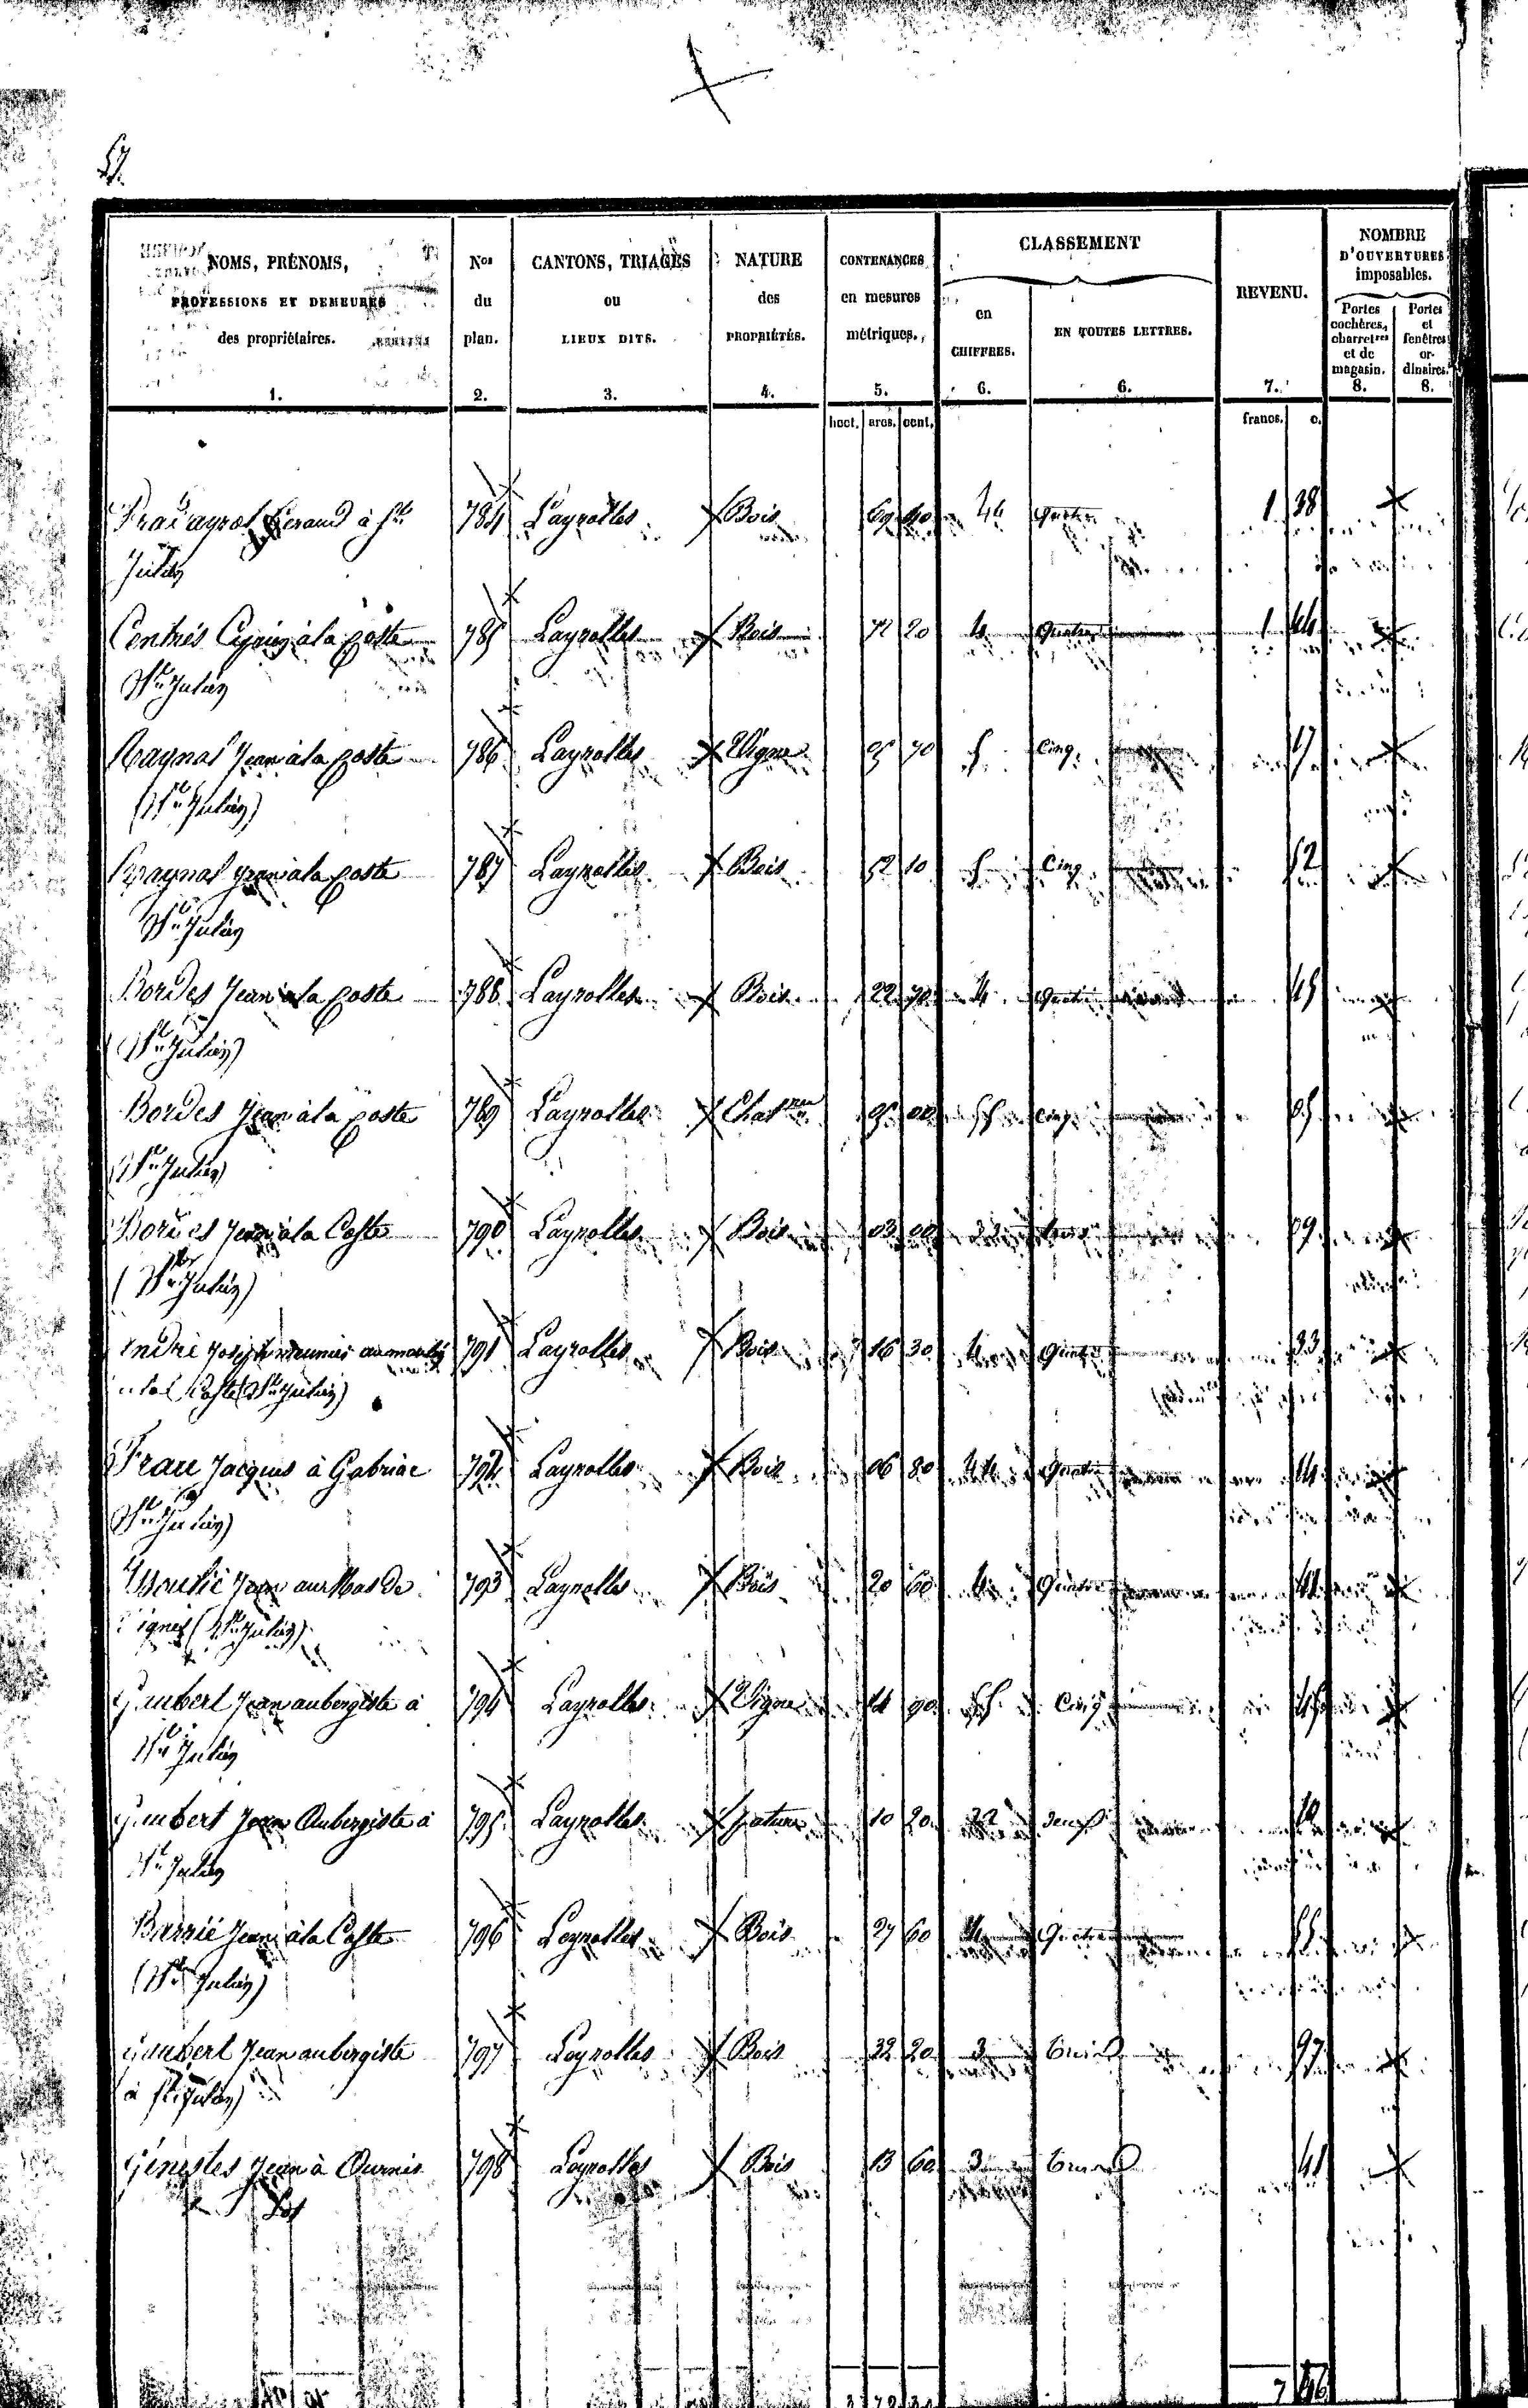 57.
NOMS, PRÉNOMS, PROFESSIONS ET DEMEURES des propriétaires. 1.
Nos du plan. 2.
CANTONS, TRIAGES ou LIEUX DITS. 3.
NATURE des PROPRIÉTÉS. 4.
CONTENANCES en mesures métriques. 5.
CLASSEMENT
en CHIFFRES. 6.
EN TOUTES LETTRES. 6.
REVENU. 7.
NOMBRE D'OUVERTURES imposables.
Portes cochères, charretres et de magasin. 8.
Portes et fenêtres ordinaires. 8.
hect. ares. cent. francs. c.
à St 784 Layrolles Bois 69 40 44 quatre 1 38
Julien
Centrés Cyprien à la Coste 785 Layrolles Bois 72 20 4 quatre 1 44
St Julien
Raynal Jean à la Coste 786 Layrolles Vigne 05 70 5 Cinq 17
(St Julien)
Raynal Jean à la Coste 787 Layrolles Bois 52 10 5 Cinq 52
St Julien
Bordes Jean à la Coste 788 Layrolles Bois 22 70 4 quatre 45
(St Julien)
Bordes Jean à la Coste 789 Layrolles 05 00 55 Cinq 05
(St Julien)
Bordes Jean à la Coste 790 Layrolles Bois 03 00 33 trois 09
(St Julien)
André Joseph meunier au moulin 791 Layrolles Bois 16 30 4 quatre 33
Coste (St Julien)
Frau Jacques à Gabriac 792 Layrolles Bois 06 80 44 quatre 14
(St Julien)
Jean au Mas de 793 Layrolles Bois 20 60 4 quatre 41
(St Julien)
Gaubert Jean aubergiste à 794 Layrolles Vigne 14 90 55 Cinq 45
St Julien
Gaubert Jean Aubergiste à 795 Layrolles pature 10 20 22 deux
St Julien
Barrié Jean à la Coste 796 Layrolles Bois 27 60 4 Quatre 55
(St Julien)
Gaubert Jean aubergiste 797 Layrolles Bois 32 20 3 trois 97
à St Julien)
Ginestes Jean à 798 Layrolles Bois 13 60 3 trois 41
Lot
3 72 30 7 46